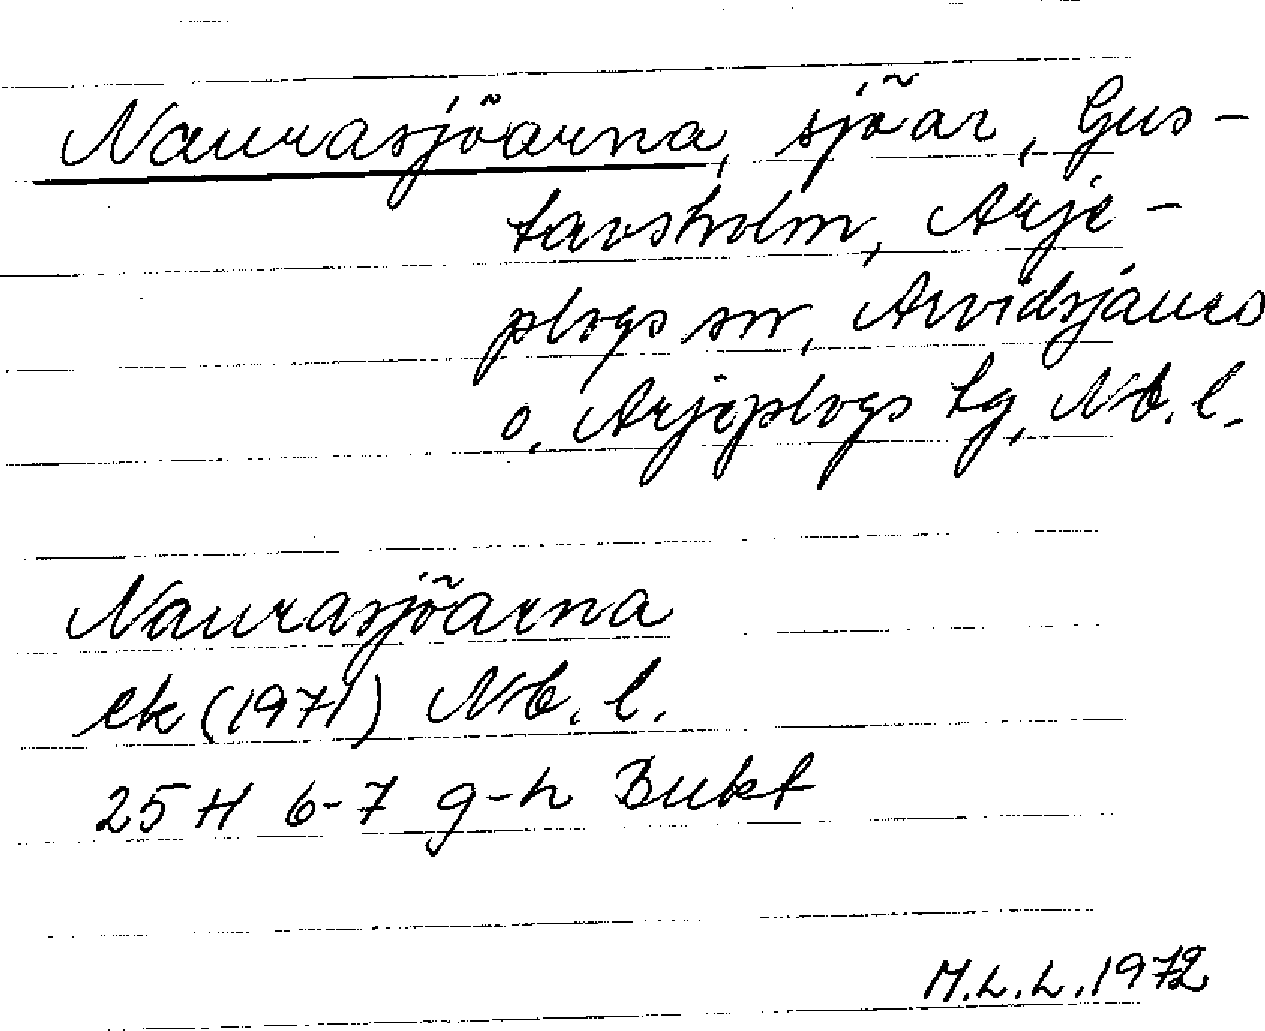 Naurasjöarna, sjöar, Gus-
tavsholm, Arje-
plogs sn, Arvidsjaurs
o. Arjeplogs tg, Nb. l.
Naurasjöarna
ek (1971) Nb. l.
25 H 6-7 g-h Bukt
M.L.L. 1972